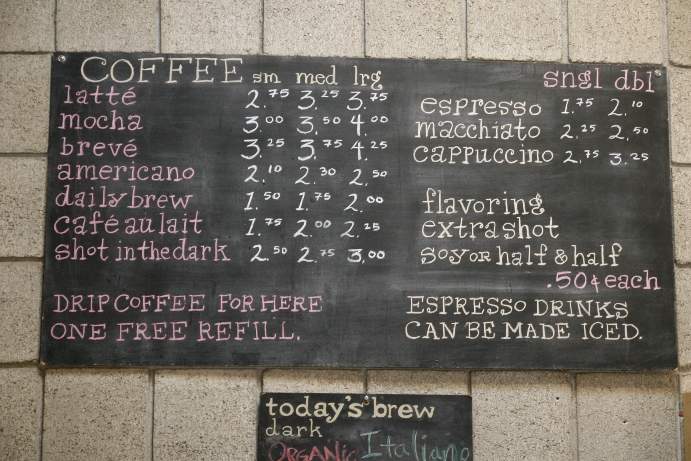 COFFEE sm med lrg
latté 2.75 3.25 3.75
mocha 3.00 3.50 4.00
brevé 3.25 3.75 4.25
americano 2.10 2.30 2.50
daily brew 1.50 1.75 2.00
café au lait 1.75 2.00 2.25
shot in the dark 2.50 2.75 3.00
DRIP COFFEE FOR HERE
ONE FREE REFILL.
sngl dbl
espresso 1.75 2.10
macchiato 2.25 2.50
cappuccino 2.75 3.25
flavoring
extra shot
soy or half & half
.50¢ each
ESPRESSO DRINKS
CAN BE MADE ICED.
today's brew
dark
ORGANIC Italiano